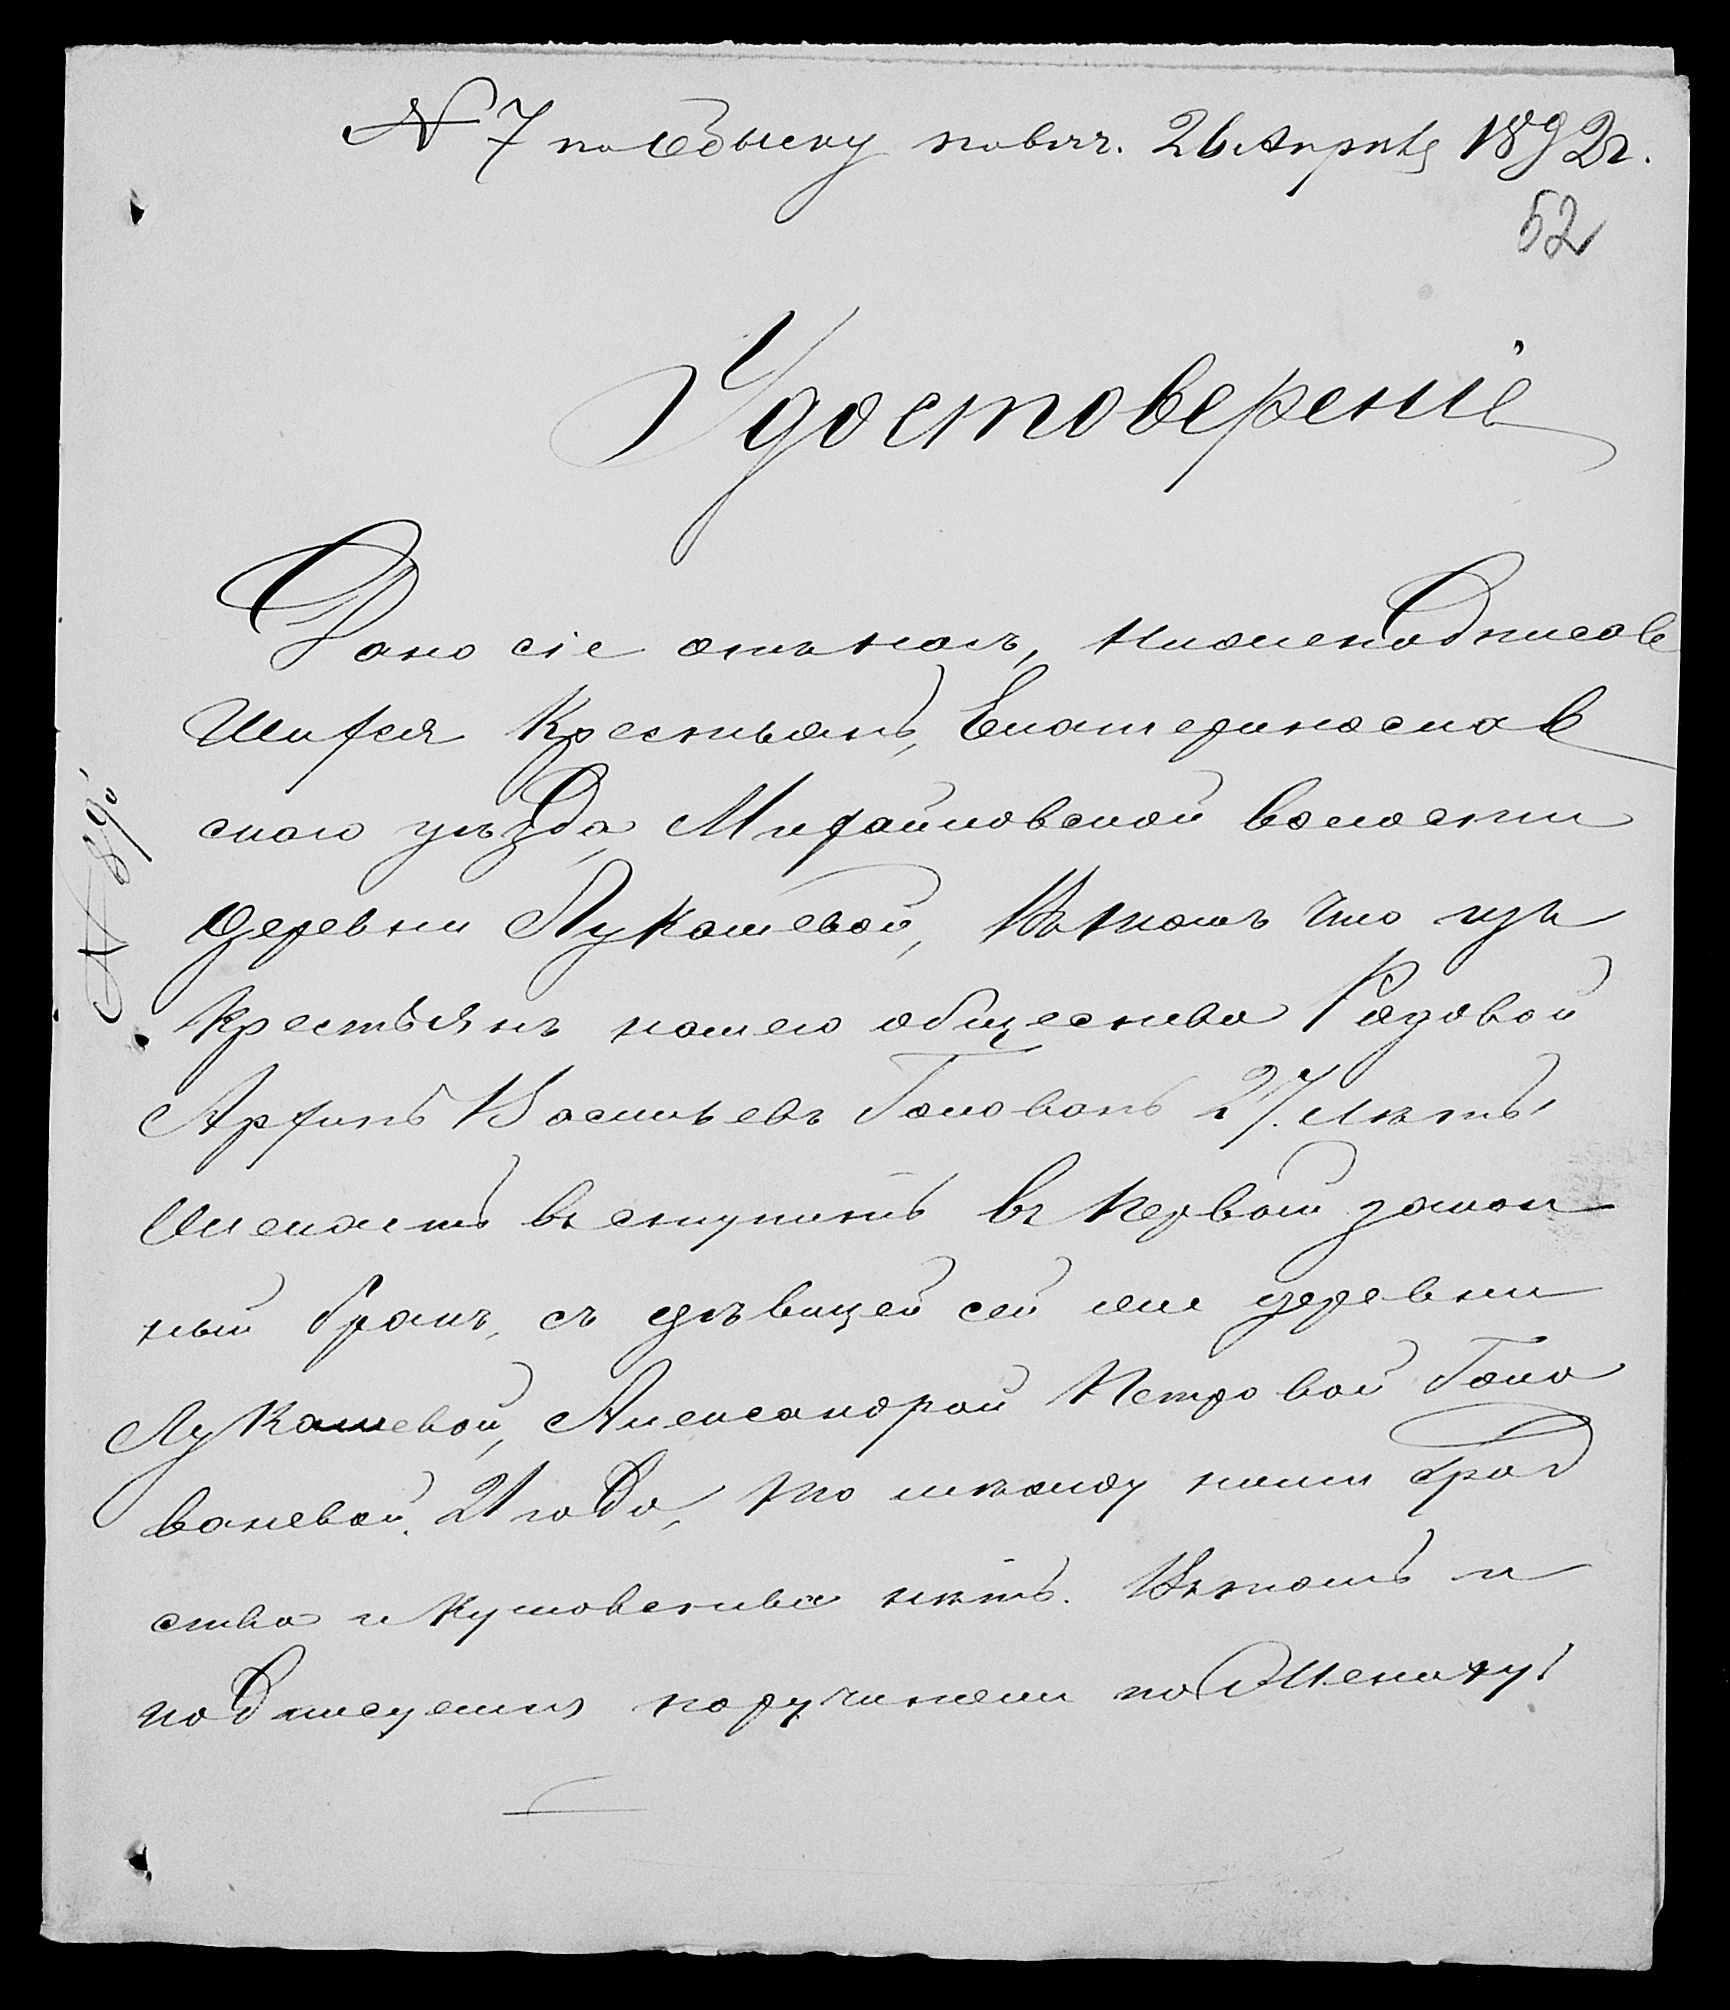 № 7 по обыску повѣнч. 26 Апрѣля 1892 г.
52
Удостоверенiе
Дано сiе отъ насъ, нижеподписав
шихся Крестьянъ, Екатеринослав
скаго уѣзда, Михайловской волости
деревни Лукашевой, Въ томъ что изъ
Крестьянъ нашего общества Рядовой
Архипъ Васильевъ Голованъ 27. лѣтъ
Желаетъ въ ступить въ Первый закон
ный бракъ, съ дѣвицей сей же деревни
Лукашевой, Александрой Петровой Голо
ваневой. 21 года, то между ними срод
ства и Кумовства нѣтъ. Въ томъ и
подписуемся поручители по Жениху:
№ 89.